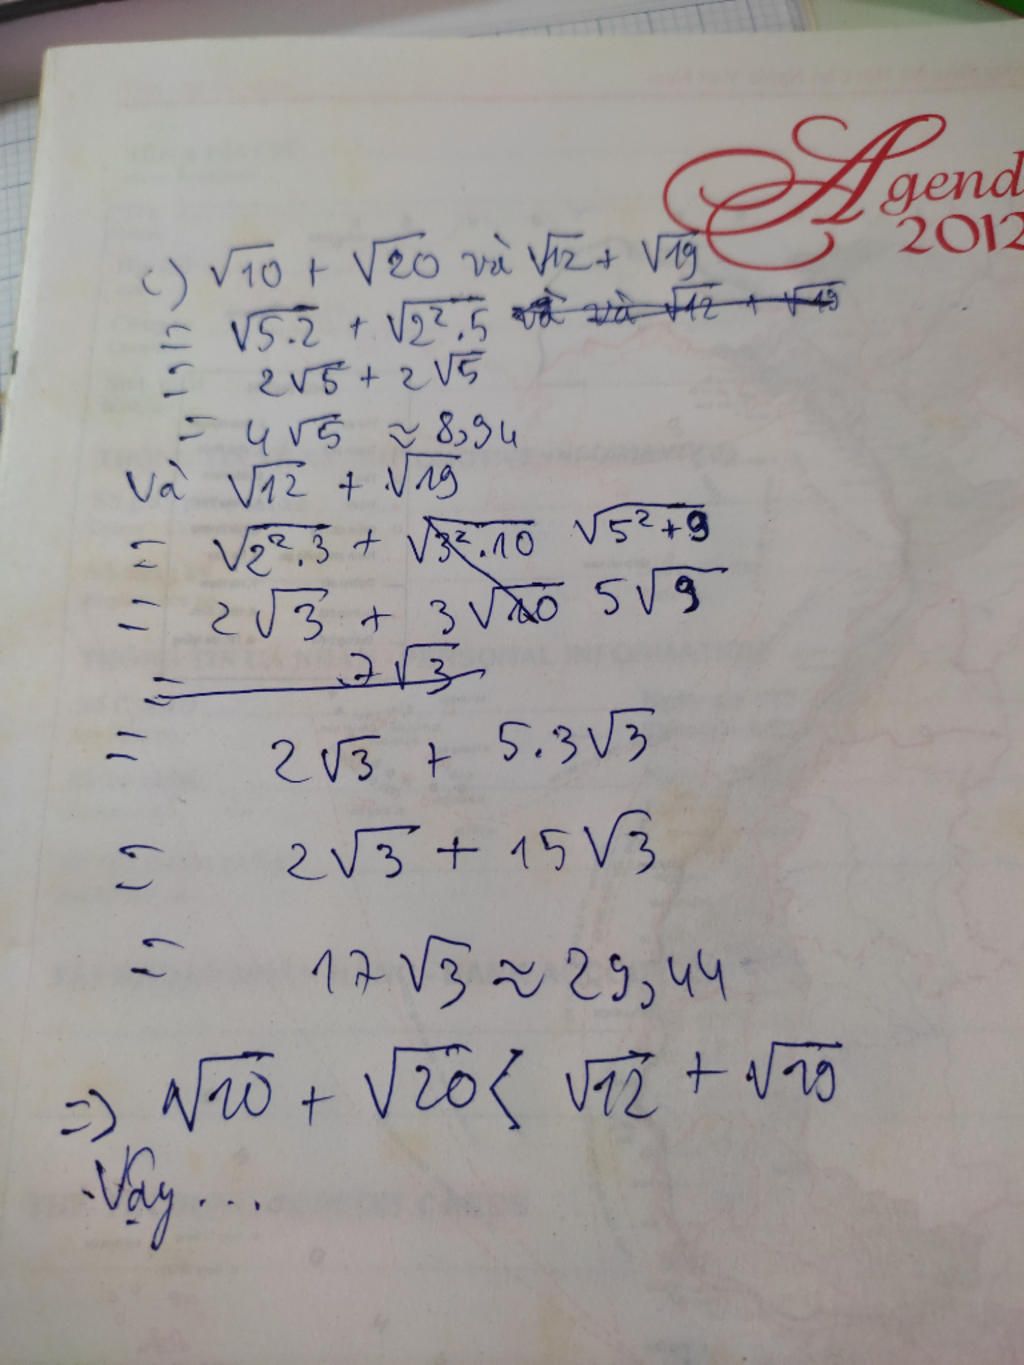 Agend
2012
c) √10 + √20 và √12 + √19
= √5.2 + √2².5 và và √12 + √19
= 2√5 + 2√5
= 4√5 ≈ 8,94
Và √12 + √19
= √2².3 + √3².10 √5²+9
= 2√3 + 3√10 5√9
= 7√3
= 2√3 + 5.3√3
= 2√3 + 15√3
= 17√3 ≈ 29,44
=> √10 + √20 < √12 + √19
Vậy ...